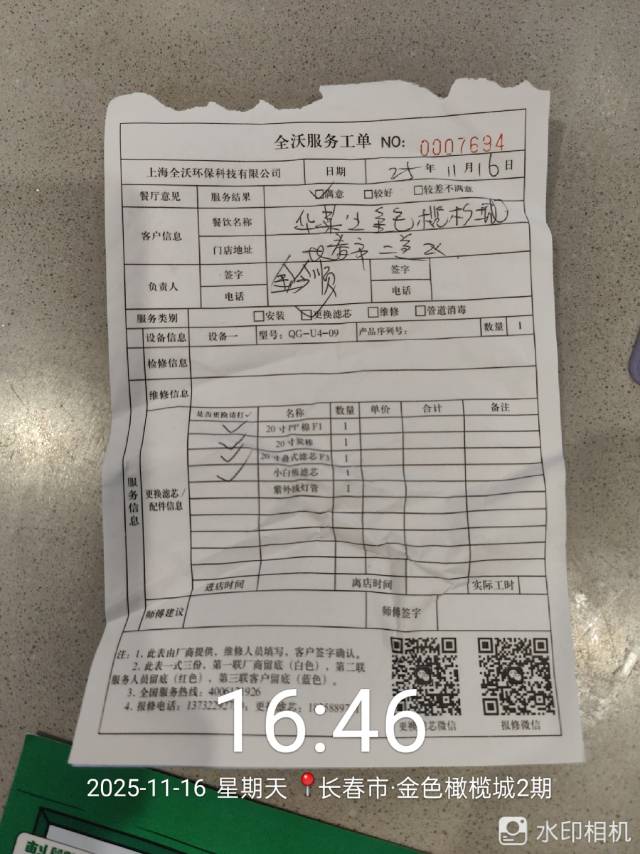 全沃服务工单 NO: 0007694
上海全沃环保科技有限公司 日期 25 年 11 月 16 日
餐厅意见 服务结果 ☑满意 □较好 □较差不满意
客户信息 餐饮名称 华莱士金色榄杉城
门店地址 长春市二道区
负责人 签字 顺 签字
电话 电话
服务类别 □安装 ☑更换滤芯 □维修 □管道消毒
设备信息 设备一 型号: QG-U4-09 产品序列号: 数量 1
检修信息
维修信息
服务信息
更换滤芯/配件信息
是否更换请打✓ 名称 数量 单价 合计 备注
✓ 20寸PP棉F1 1
✓ 20寸炭棒 1
✓ 20寸叠式滤芯F3 1
✓ 小白瓶滤芯 1
紫外线灯管 1
进店时间 离店时间 实际工时
师傅建议 师傅签字
注: 1. 此表由厂商提供，维修人员填写，客户签字确认。
2. 此表一式三份，第一联厂商留底（白色），第二联
服务人员留底（红色），第三联客户留底（蓝色）。
3. 全国服务热线:
4. 报修电话:
更换滤芯微信 报修微信
16:46
2025-11-16 星期天 长春市·金色橄榄城2期
水印相机